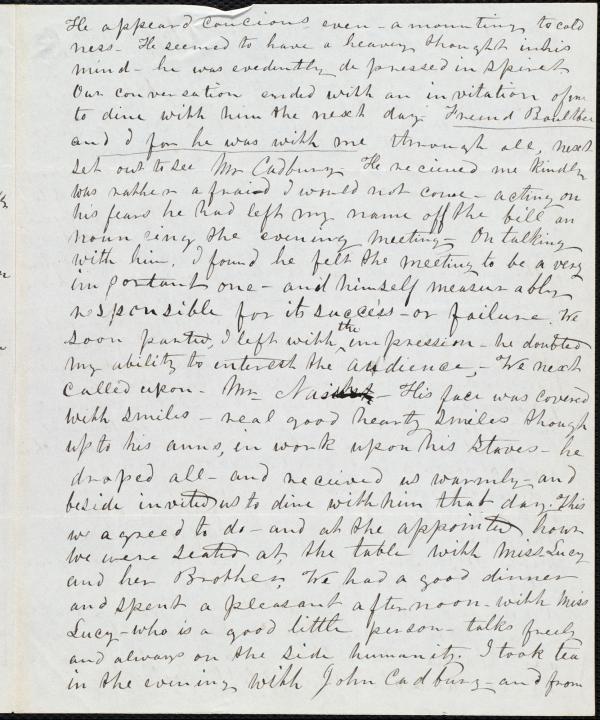 He appeard concious even - a mounting to cold
ness - He seemed to have a heavy thought in his
mind - he was evedently depressed in spirit
Our conversation ended with an invitation of me
to dine with him the next day. Freind Boultbee
and I for he was with me through all, next
set out to see Mr Cadbury He recieved me kindly
was rather afraid I would not come - acting on
his fears he had left my name off the bill an
noun cing the evening meeting - On talking
with him, I found he felt the meeting to be a very
important one - and himself measurably
responsible for its success - or failure. We
soon parted, I left with the impression - he doubted
my ability to interest the audience, - We next
called upon - Mr - His face was covered
with smiles - real good hearty smiles though
up to his arms, in work upon his staves - he
droped all - and recieved us warmly - and
beside invited us to dine with him that day. This
we agreed to do - and at the appointed hour
we were seated at the table with Miss Lucy
and her Brother, We had a good dinner
and spent a pleasant afternoon - with Miss
Lucy - who is a good little person - talks freely
and always on the side humanity. I took tea
in the evening with John Cadbury - and from